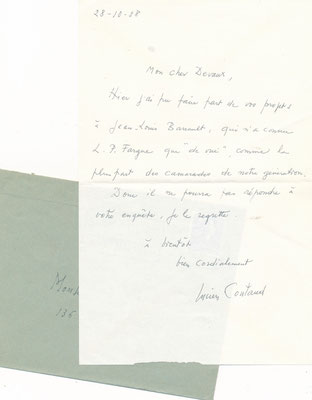 23-10-58
Mon cher Devaux,
Hier j'ai pu faire part de vos projets
à Jean-Louis Barrault, qui n'a connu
L. P. Fargue que "de vue", comme la
plupart des camarades de notre génération.
Donc il ne pourra pas répondre à
votre enquête. Je le regrette
à bientôt
bien cordialement
Lucien Coutaud
Mons
136